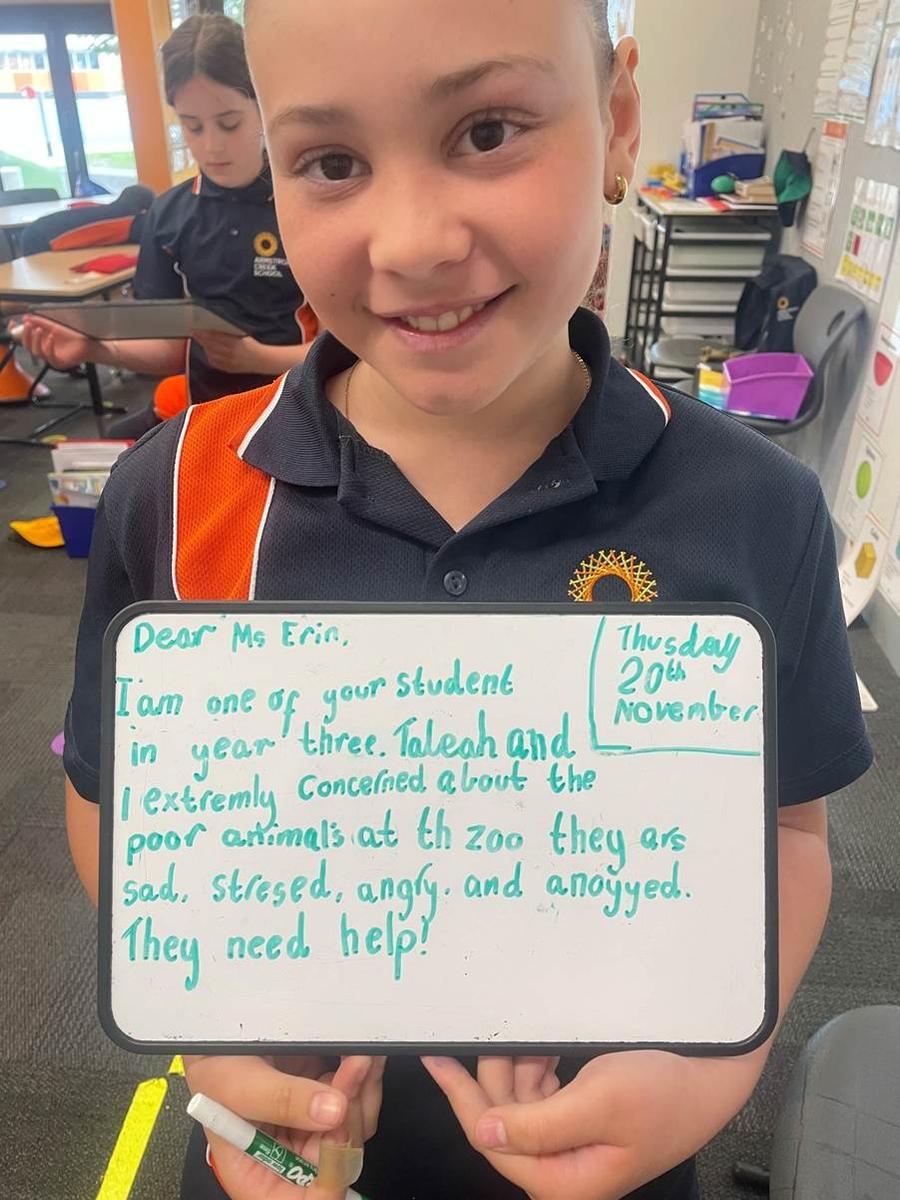 Dear Ms Erin,
I am one of your student
in year three. Taleah and
I extremly concerned about the
poor animals at th zoo they ars
sad, stresed, angry. and anoyyed.
They need help!
Thusday
20th
November
ARMSTRONG
CREEK
SCHOOL